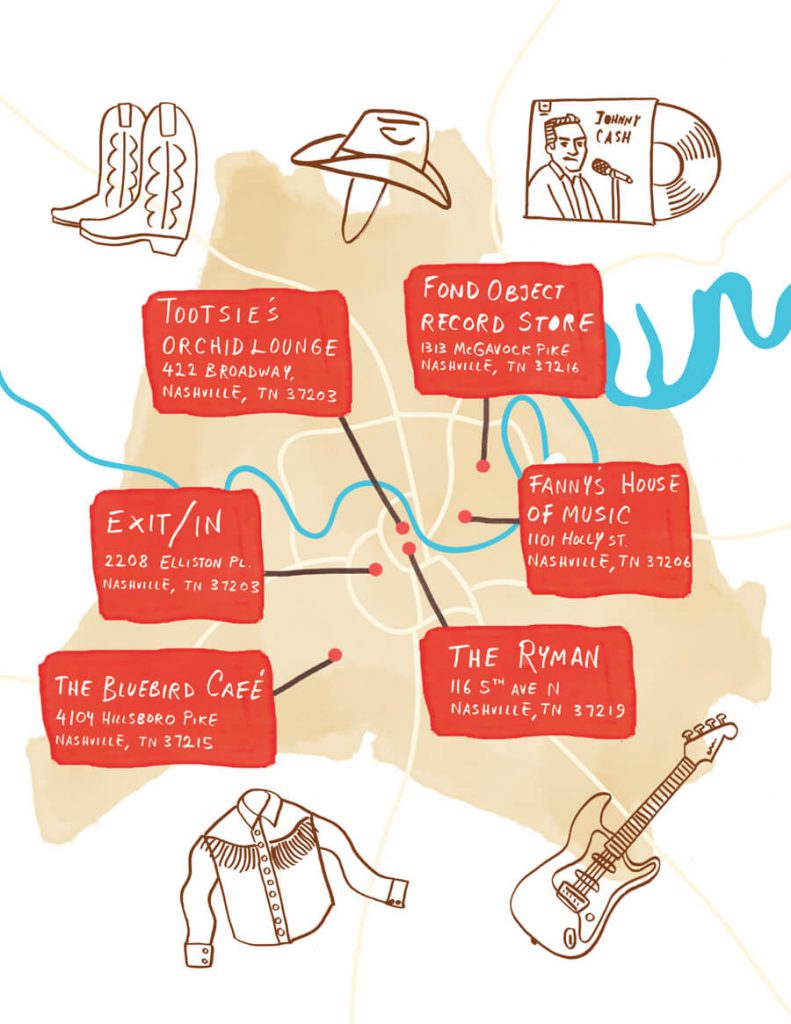 JOHNNY
CASH
TOOTSIE'S
ORCHID LOUNGE
422 BROADWAY,
NASHVILLE, TN 37203
FOND OBJECT
RECORD STORE
1313 McGAVOCK PIKE
NASHVILLE, TN 37216
EXIT/IN
2208 ELLISTON PL.
NASHVILLE, TN 37203
FANNY'S HOUSE
OF MUSIC
1101 HOLLY ST.
NASHVILLE, TN 37206
THE BLUEBIRD CAFÉ
4104 HILLSBORO PIKE
NASHVILLE, TN 37215
THE RYMAN
116 5TH AVE N
NASHVILLE, TN 37219